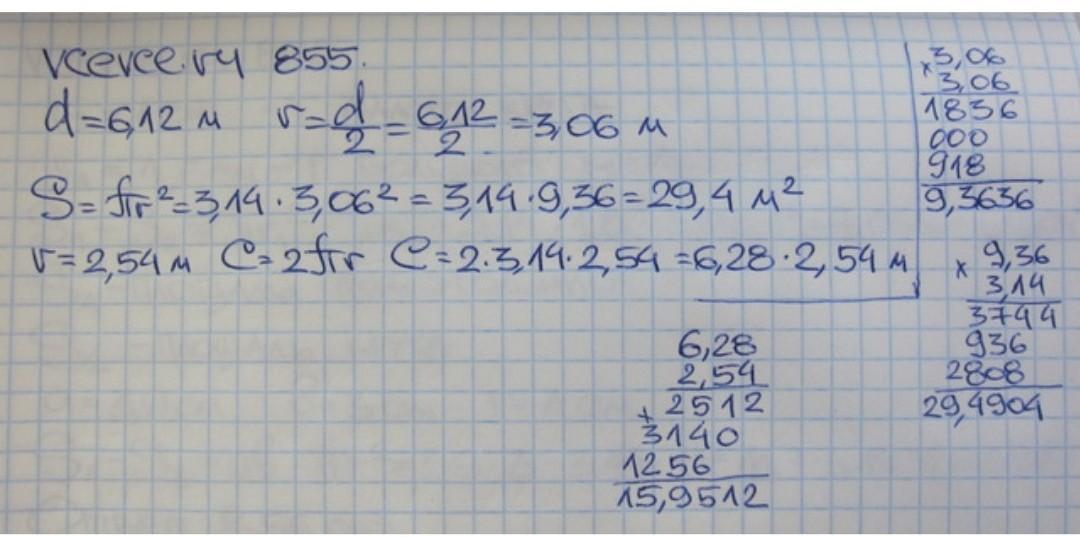 vcevce.ry 855.
d=6,12 м r=d/2=6,12/2=3,06 м
S=πr²=3,14·3,06²=3,14·9,36=29,4 м²
r=2,54м C=2πr C=2·3,14·2,54=6,28·2,54 м
×3,06
3,06
1836
000
918
9,3636
× 9,36
3,14
3744
936
2808
29,4904
6,28
2,54
+2512
3140
1256
15,9512